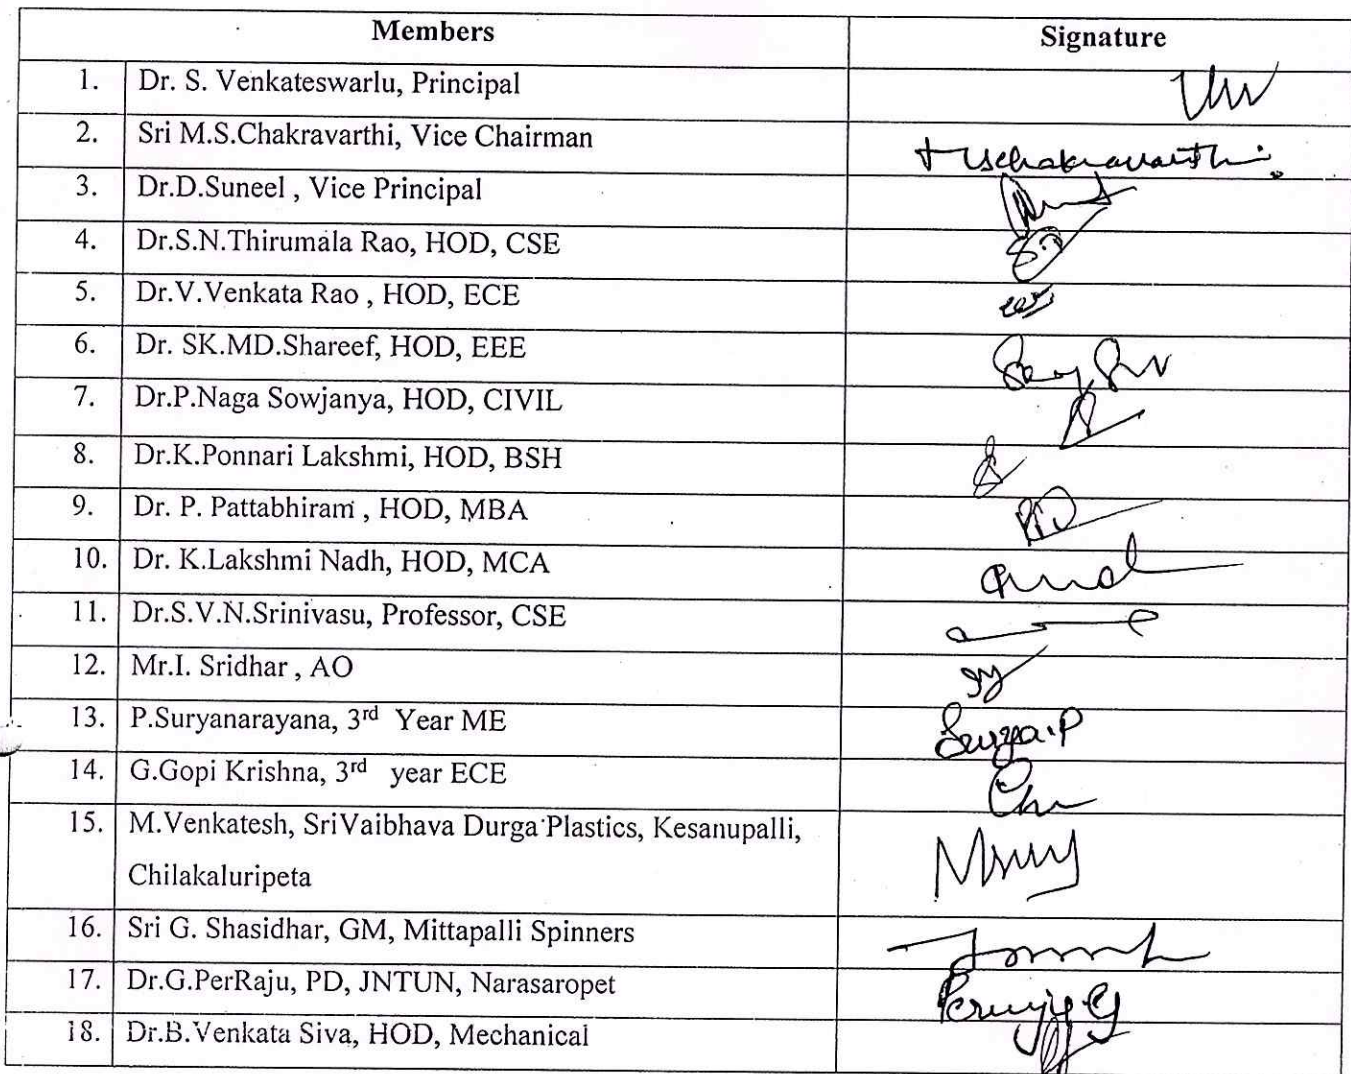 Members Signature
1. Dr. S. Venkateswarlu, Principal
2. Sri M.S.Chakravarthi, Vice Chairman
3. Dr.D.Suneel , Vice Principal
4. Dr.S.N.Thirumala Rao, HOD, CSE
5. Dr.V.Venkata Rao , HOD, ECE
6. Dr. SK.MD.Shareef, HOD, EEE
7. Dr.P.Naga Sowjanya, HOD, CIVIL
8. Dr.K.Ponnari Lakshmi, HOD, BSH
9. Dr. P. Pattabhiram , HOD, MBA
10. Dr. K.Lakshmi Nadh, HOD, MCA
11. Dr.S.V.N.Srinivasu, Professor, CSE
12. Mr.I. Sridhar , AO
13. P.Suryanarayana, 3rd Year ME Surya.P
14. G.Gopi Krishna, 3rd year ECE
15. M.Venkatesh, SriVaibhava Durga Plastics, Kesanupalli,
Chilakaluripeta
16. Sri G. Shasidhar, GM, Mittapalli Spinners
17. Dr.G.PerRaju, PD, JNTUN, Narasaropet
18. Dr.B.Venkata Siva, HOD, Mechanical